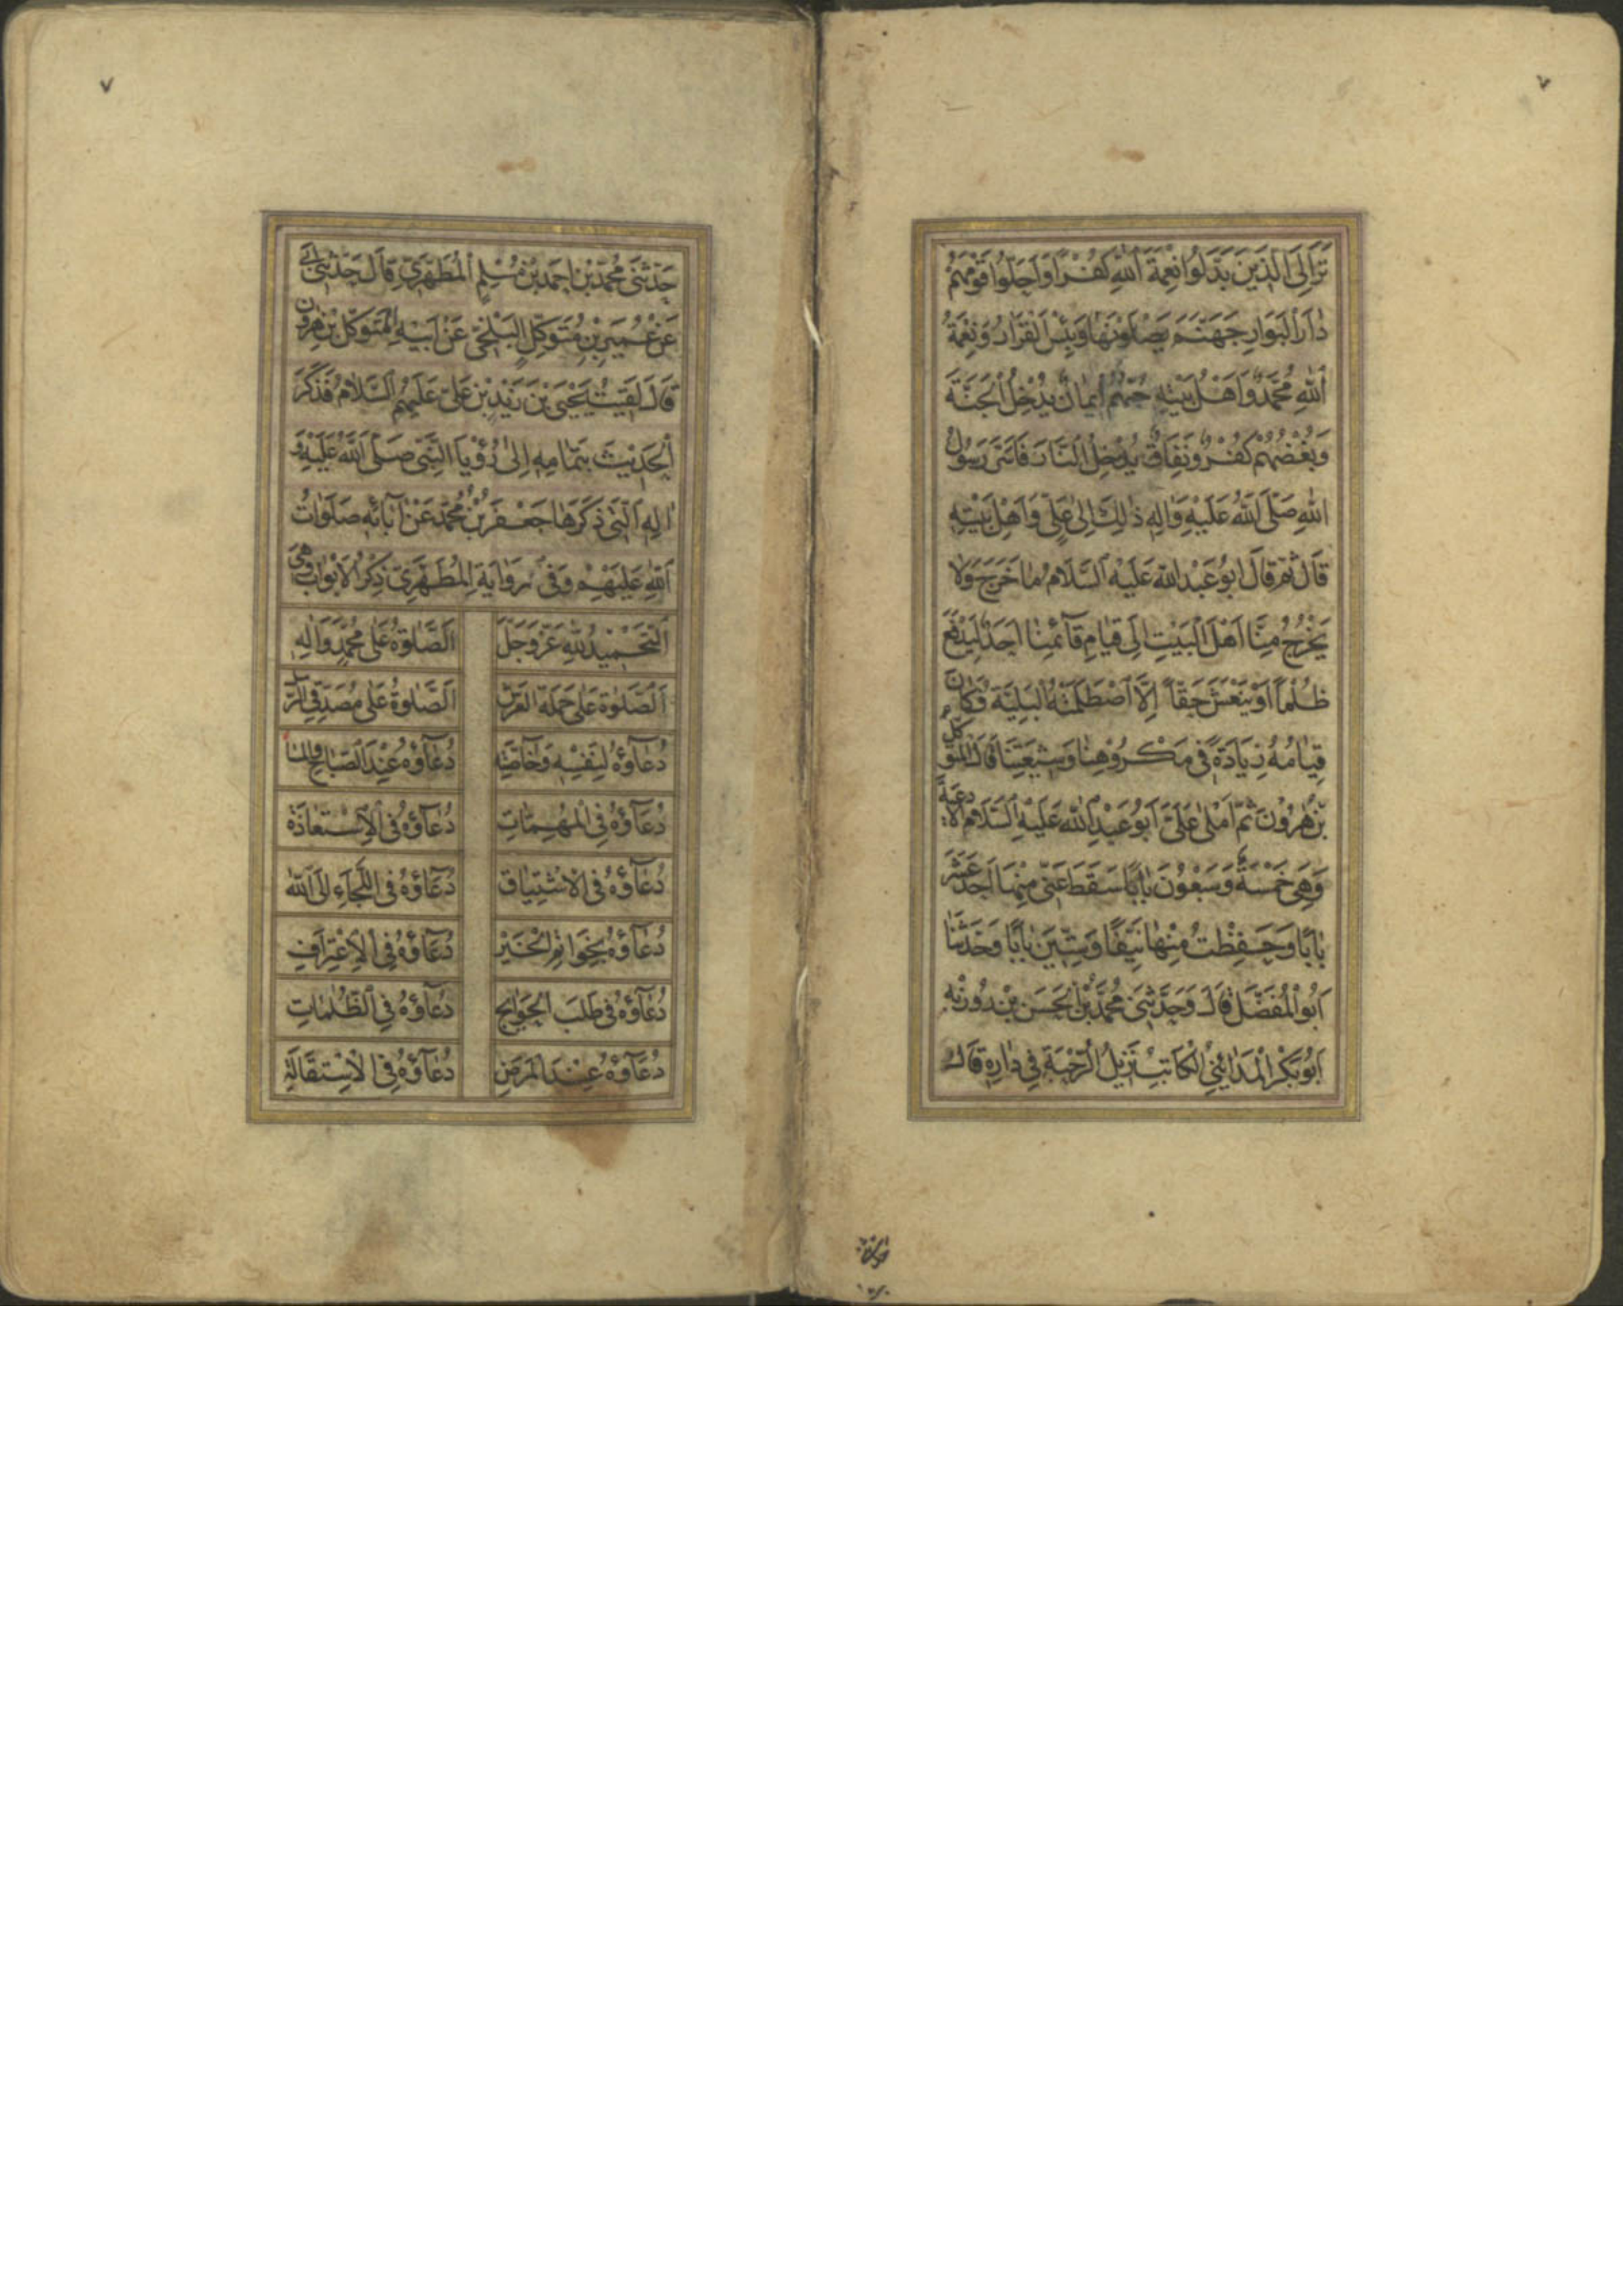 ٧
تَرَ إِلَى الَّذِينَ بَدَّلُوا نِعْمَةَ اللهِ كُفْرًا وَاَحَلُّوا قَوْمَهُمْ
دٰارَ الْبَوَارِ جَهَنَّمَ يَصْلَوْنَهٰا وَبِئْسَ الْقَرَارُ وَنِعْمَةُ
اللهِ مُحَمَّدٌ وَاَهْلُ بَيْتِهِ حُبُّهُمْ اِيمٰانٌ يُدْخِلُ الْجَنَّةَ
وَبُغْضُهُمْ كُفْرٌ وَنِفَاقٌ يُدْخِلُ النَّارَ فَاَسَرَّ رَسُولُ
اللهِ صَلَّى اللهُ عَلَيْهِ وَاٰلِهِ ذٰلِكَ اِلىٰ عَلِيٍّ وَاَهْلِ بَيْتِهِ
قَالَ ثُمَّ قَالَ اَبُو عَبْدِ اللهِ عَلَيْهِ السَّلَامُ مٰا خَرَجَ وَلٰا
يَخْرُجُ مِنَّا اَهْلَ الْبَيْتِ اِلَى قِيٰامِ قٰآئِمِنٰا اَحَدٌ لِيَدْفَعَ
ظُلْمًا اَوْ يَنْعَشَ حَقّاً اِلَّا اصْطَلَمَتْهُ الْبَلِيَّةُ وَكٰانَ
قِيٰامُهُ زِيَادَةً فِى مَكْرُوْهِنٰا وَشِيعَتِنَا قَالَ الْمُتَوَكِّلُ
بْنُ هٰرُوْنَ ثُمَّ اَمْلٰى عَلَىَّ اَبُو عَبْدِ اللهِ عَلَيْهِ السَّلَامُ الْاَدْعِيَةَ
وَهِىَ خَمْسَةٌ وَسَبْعُوْنَ بٰابًا سَقَطَ عَنِّى مِنْهٰا اَحَدَ عَشَرَ
بٰابًا وَحَفِظْتُ مِنْهٰا نَيِّفًا وَسِتِّيْنَ بٰابًا وَحَدَّثَنٰا
اَبُو الْمُفَضَّلِ قٰالَ وَحَدَّثَنِى مُحَمَّدُ بْنُ الْحَسَنِ بْنِ رُوْزْبِهِ
اَبُو بَكْرٍ الْمَدٰائِنِيُّ الْكٰاتِبُ نَزِيلُ الرَّحْبَةِ فِى دٰارِهِ قٰالَ
٧
حَدَّثَنِى مُحَمَّدُ بْنُ اَحْمَدَ بْنِ مُسْلِمٍ الْمُطَهَّرِيُّ قَالَ حَدَّثَنِى اَبِى
عَنْ عُمَيْرِ بْنِ مُتَوَكِّلٍ الْبَلْخِىِّ عَنْ اَبِيْهِ الْمُتَوَكِّلِ بْنِ هٰرُونَ
قٰالَ لَقِيتُ يَحْيَى بْنَ زَيْدِ بْنِ عَلِىٍّ عَلَيْهِمُ السَّلٰامُ فَذَكَرَ
الْحَدِيْثَ بِتَمٰامِهِ اِلىٰ رُؤْيَا النَّبِىِّ صَلَّى اللهُ عَلَيْهِ وَ
اٰلِهِ الَّتِى ذَكَرَهٰا جَعْفَرُ بْنُ مُحَمَّدٍ عَنْ اٰبٰائِهِ صَلَوٰاتُ
اللهِ عَلَيْهِمْ وَفِى رِوٰايَةِ الْمُطَهَّرِيِّ ذِكْرُ الْاَبْوٰابِ وَهِىَ
اَلتَّحْمِيْدُ لِلهِ عَزَّ وَجَلَّ اَلصَّلٰوةُ عَلىٰ مُحَمَّدٍ وَاٰلِهِ
اَلصَّلٰوةُ عَلىٰ حَمَلَةِ الْعَرْشِ اَلصَّلٰوةُ عَلىٰ مُصَدِّقِى الرُّسُلِ
دُعٰاؤُهُ لِنَفْسِهِ وَخٰاصَّتِهِ دُعٰاؤُهُ عِنْدَ الصَّبٰاحِ وَالْمَسٰاءِ
دُعٰاؤُهُ فِى الْمُهِمّٰاتِ دُعٰاؤُهُ فِى الْاِسْتِعٰاذَةِ
دُعٰاؤُهُ فِى الْاِشْتِيٰاقِ دُعٰاؤُهُ فِى اللَّجَاءِ اِلَى اللهِ
دُعٰاؤُهُ بِخَوٰاتِمِ الْخَيْرِ دُعٰاؤُهُ فِى الْاِعْتِرٰافِ
دُعٰاؤُهُ فِى طَلَبِ الْحَوٰائِجِ دُعٰاؤُهُ فِى الظُّلٰمٰاتِ
دُعٰاؤُهُ عِنْدَ الْمَرَضِ دُعٰاؤُهُ فِى الْاِسْتِقٰالَةِ